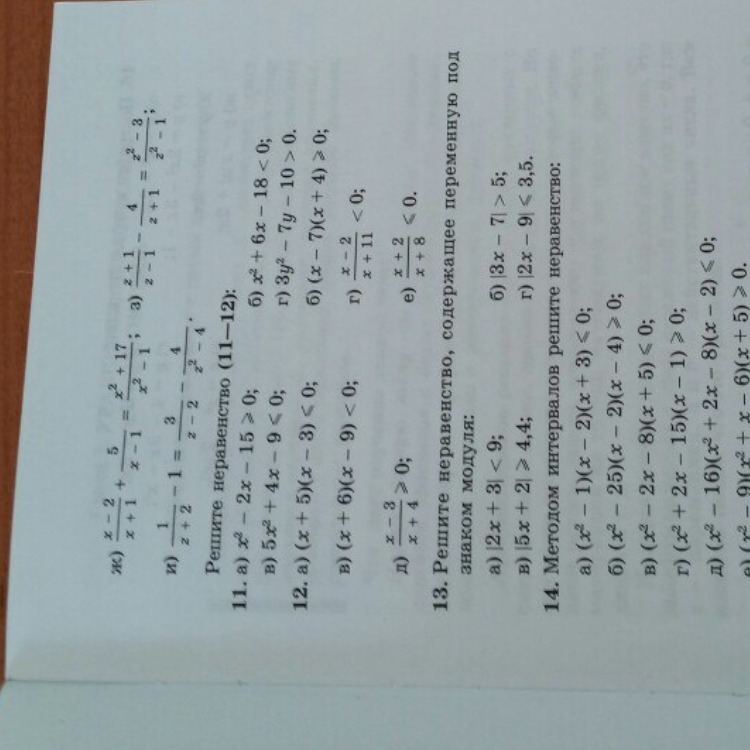 ж) \frac{x - 2}{x + 1} + \frac{5}{x - 1} = \frac{x² + 17}{x² - 1}; з) \frac{z + 1}{z - 1} - \frac{4}{z + 1} = \frac{z² - 3}{z² - 1};
и) \frac{1}{z + 2} - 1 = \frac{3}{z - 2} - \frac{4}{z² - 4}.
Решите неравенство (11—12):
11. а) x² - 2x - 15 ⩾ 0; б) x² + 6x - 18 < 0;
в) 5x² + 4x - 9 ⩽ 0; г) 3y² - 7y - 10 > 0.
12. а) (x + 5)(x - 3) ⩽ 0; б) (x - 7)(x + 4) ⩾ 0;
в) (x + 6)(x - 9) < 0; г) \frac{x - 2}{x + 11} < 0;
д) \frac{x - 3}{x + 4} ⩾ 0; е) \frac{x + 2}{x + 8} ⩽ 0.
13. Решите неравенство, содержащее переменную под
знаком модуля:
а) |2x + 3| < 9; б) |3x - 7| > 5;
в) |5x + 2| ⩾ 4,4; г) |2x - 9| ⩽ 3,5.
14. Методом интервалов решите неравенство:
а) (x² - 1)(x - 2)(x + 3) ⩽ 0;
б) (x² - 25)(x - 2)(x - 4) ⩾ 0;
в) (x² - 2x - 8)(x + 5) ⩽ 0;
г) (x² + 2x - 15)(x - 1) ⩾ 0;
д) (x² - 16)(x² + 2x - 8)(x - 2) ⩽ 0;
е) (x² - 9)(x² + x - 6)(x + 5) ⩾ 0.